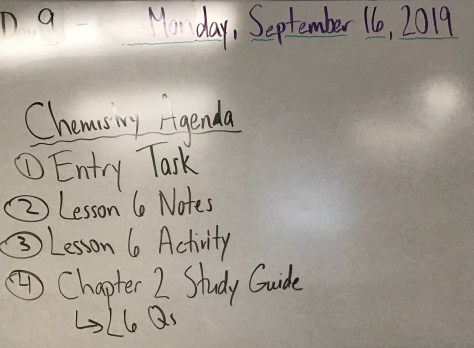 Day 9 - Monday, September 16, 2019
Chemistry Agenda
① Entry Task
② Lesson 6 Notes
③ Lesson 6 Activity
④ Chapter 2 Study Guide
↳ L6 Qs